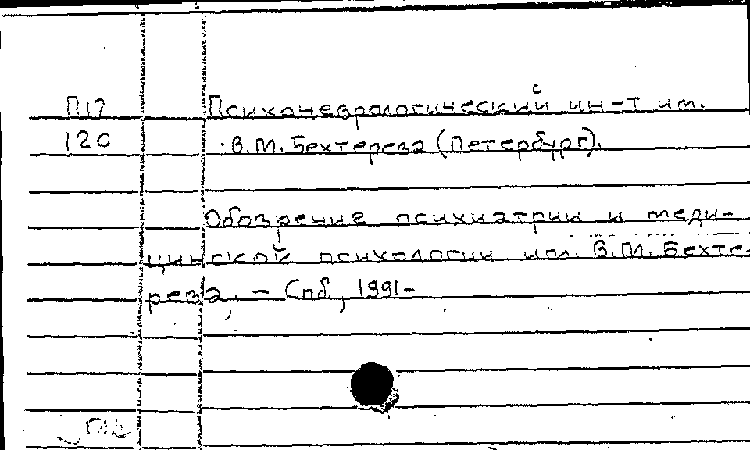 П17 Психоневрологический ин-т им.
120 В.М. Бехтерева (Петербург).
Обозрение психиатрии и меди-
цинской психологии им. В.М. Бехте-
рева. - Спб, 1991-